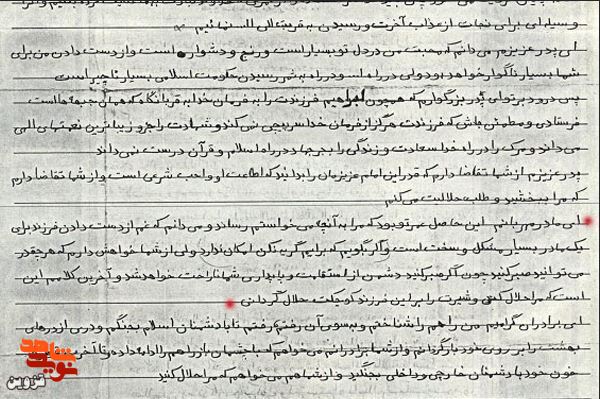 وسیله ای برای نجات از عذاب آخرت و رسیدن به قرب تعالی الله نمائیم
ای پدر عزیزم می دانم که محبت من در دل تو بسیار است و رنج و دشوار است و از دست دادن من برای
شما بسیار ناگوار خواهد بود ولی در راه اسلام و در راه به ثمر رسیدن حکومت اسلامی بسیار ناچیز است
پس درود بر تو ای پدر بزرگوارم که همچون ابراهیم فرزندت را به فرمان خدا به قربانگاه که همان جبهه ها است
فرستادی و مطمئن باش که فرزندت هرگز از فرمان خدا سرپیچی نمی کند و شهادت را جزو زیباترین نعمتهای الهی
می داند و مرگ را در راه خدا سعادت و زندگی را بجز جهاد در راه اسلام و قرآن درست نمی داند
پدر عزیزم از شما تقاضا دارم که قدر این امام عزیزمان را بدانید که اطاعت او واجب شرعی است و از شما تقاضا دارم
که مرا ببخشید و طلب حلالیت می کنم
ای مادر مهربانم این حاصل عمر تو بود که مرا به آنچه می خواستم رساند و می دانم که غم از دست دادن فرزند برای
یک مادر بسیار مشکل و سخت است و اگر بگویم که برایم گریه نکن امکان ندارد ولی از شما خواهش دارم که هر چقدر
می توانید صبر کنید چون اگر صبر کنید دشمن از استقامت و پایداری شما ناراحت خواهد شد و آخرین کلامم این
است که مرا حلال کنی و شیرت را بر این فرزند کوچکت حلال گردانی
ای برادران گرامیم من راهم را شناختم و بسوی آن رفتم رفتم تا با دشمنان اسلام بجنگم و دری از درهای
بهشت را بر روی خود باز گردانم و از شما برادرانم می خواهم که با چشمان باز راهم را ادامه داده و تا آخرین
خون خود با دشمنان خارجی و داخلی بجنگید و از شما هم می خواهم که مرا حلال کنید
شاهد
نوید
قزوین